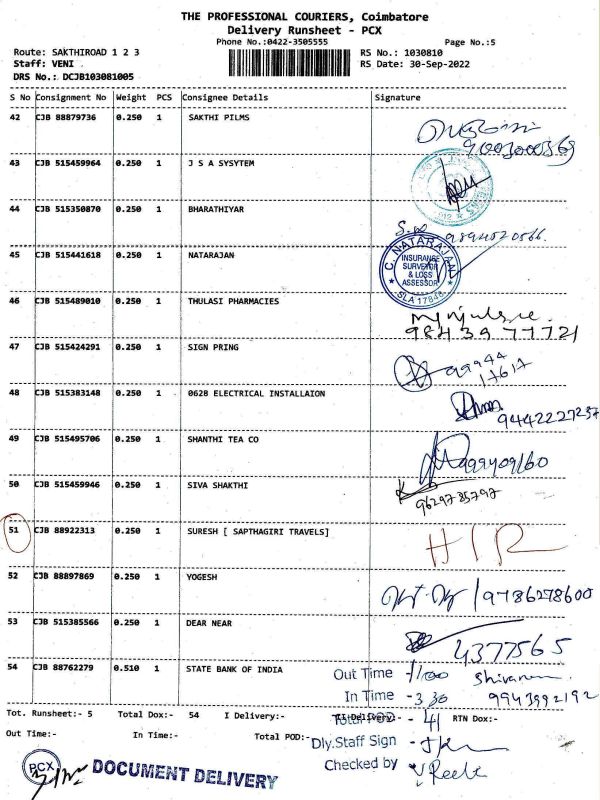 THE PROFESSIONAL COURIERS, Coimbatore
Delivery Runsheet - PCX
Phone No.:0422-3505555 Page No.:5
Route: SAKTHIROAD 1 2 3 RS No.: 1030810
Staff: VENI RS Date: 30-Sep-2022
DRS No.: DCJB103081005
S No Consignment No Weight PCS Consignee Details Signature
42 CJB 88879736 0.250 1 SAKTHI PILMS
9003000369
43 CJB 515459964 0.250 1 J S A SYSYTEM
44 CJB 515350870 0.250 1 BHARATHIYAR
9894520566
45 CJB 515441618 0.250 1 NATARAJAN
C. NATARAJAN
INSURANCE
SURVEYOR
& LOSS
ASSESSOR
SLA 17848
46 CJB 515489010 0.250 1 THULASI PHARMACIES
9843977721
47 CJB 515424291 0.250 1 SIGN PRING
99944
17617
48 CJB 515383148 0.250 1 0628 ELECTRICAL INSTALLAION
9442227237
49 CJB 515495706 0.250 1 SHANTHI TEA CO
50 CJB 515459946 0.250 1 SIVA SHAKTHI
9629735797
51 CJB 88922313 0.250 1 SURESH [ SAPTHAGIRI TRAVELS]
HIR
52 CJB 88897869 0.250 1 YOGESH
9786278600
53 CJB 515385566 0.250 1 DEAR NEAR
4377565
54 CJB 88762279 0.510 1 STATE BANK OF INDIA
Out Time - 1100
In Time - 3.30 9943992192
Tot. Runsheet:- 5 Total Dox:- 54 I Delivery:- II Delivery:- RTN Dox:-
Total POD - 41
Out Time:- In Time:- Total POD:-
Dly.Staff Sign -
Checked by -
PCX DOCUMENT DELIVERY